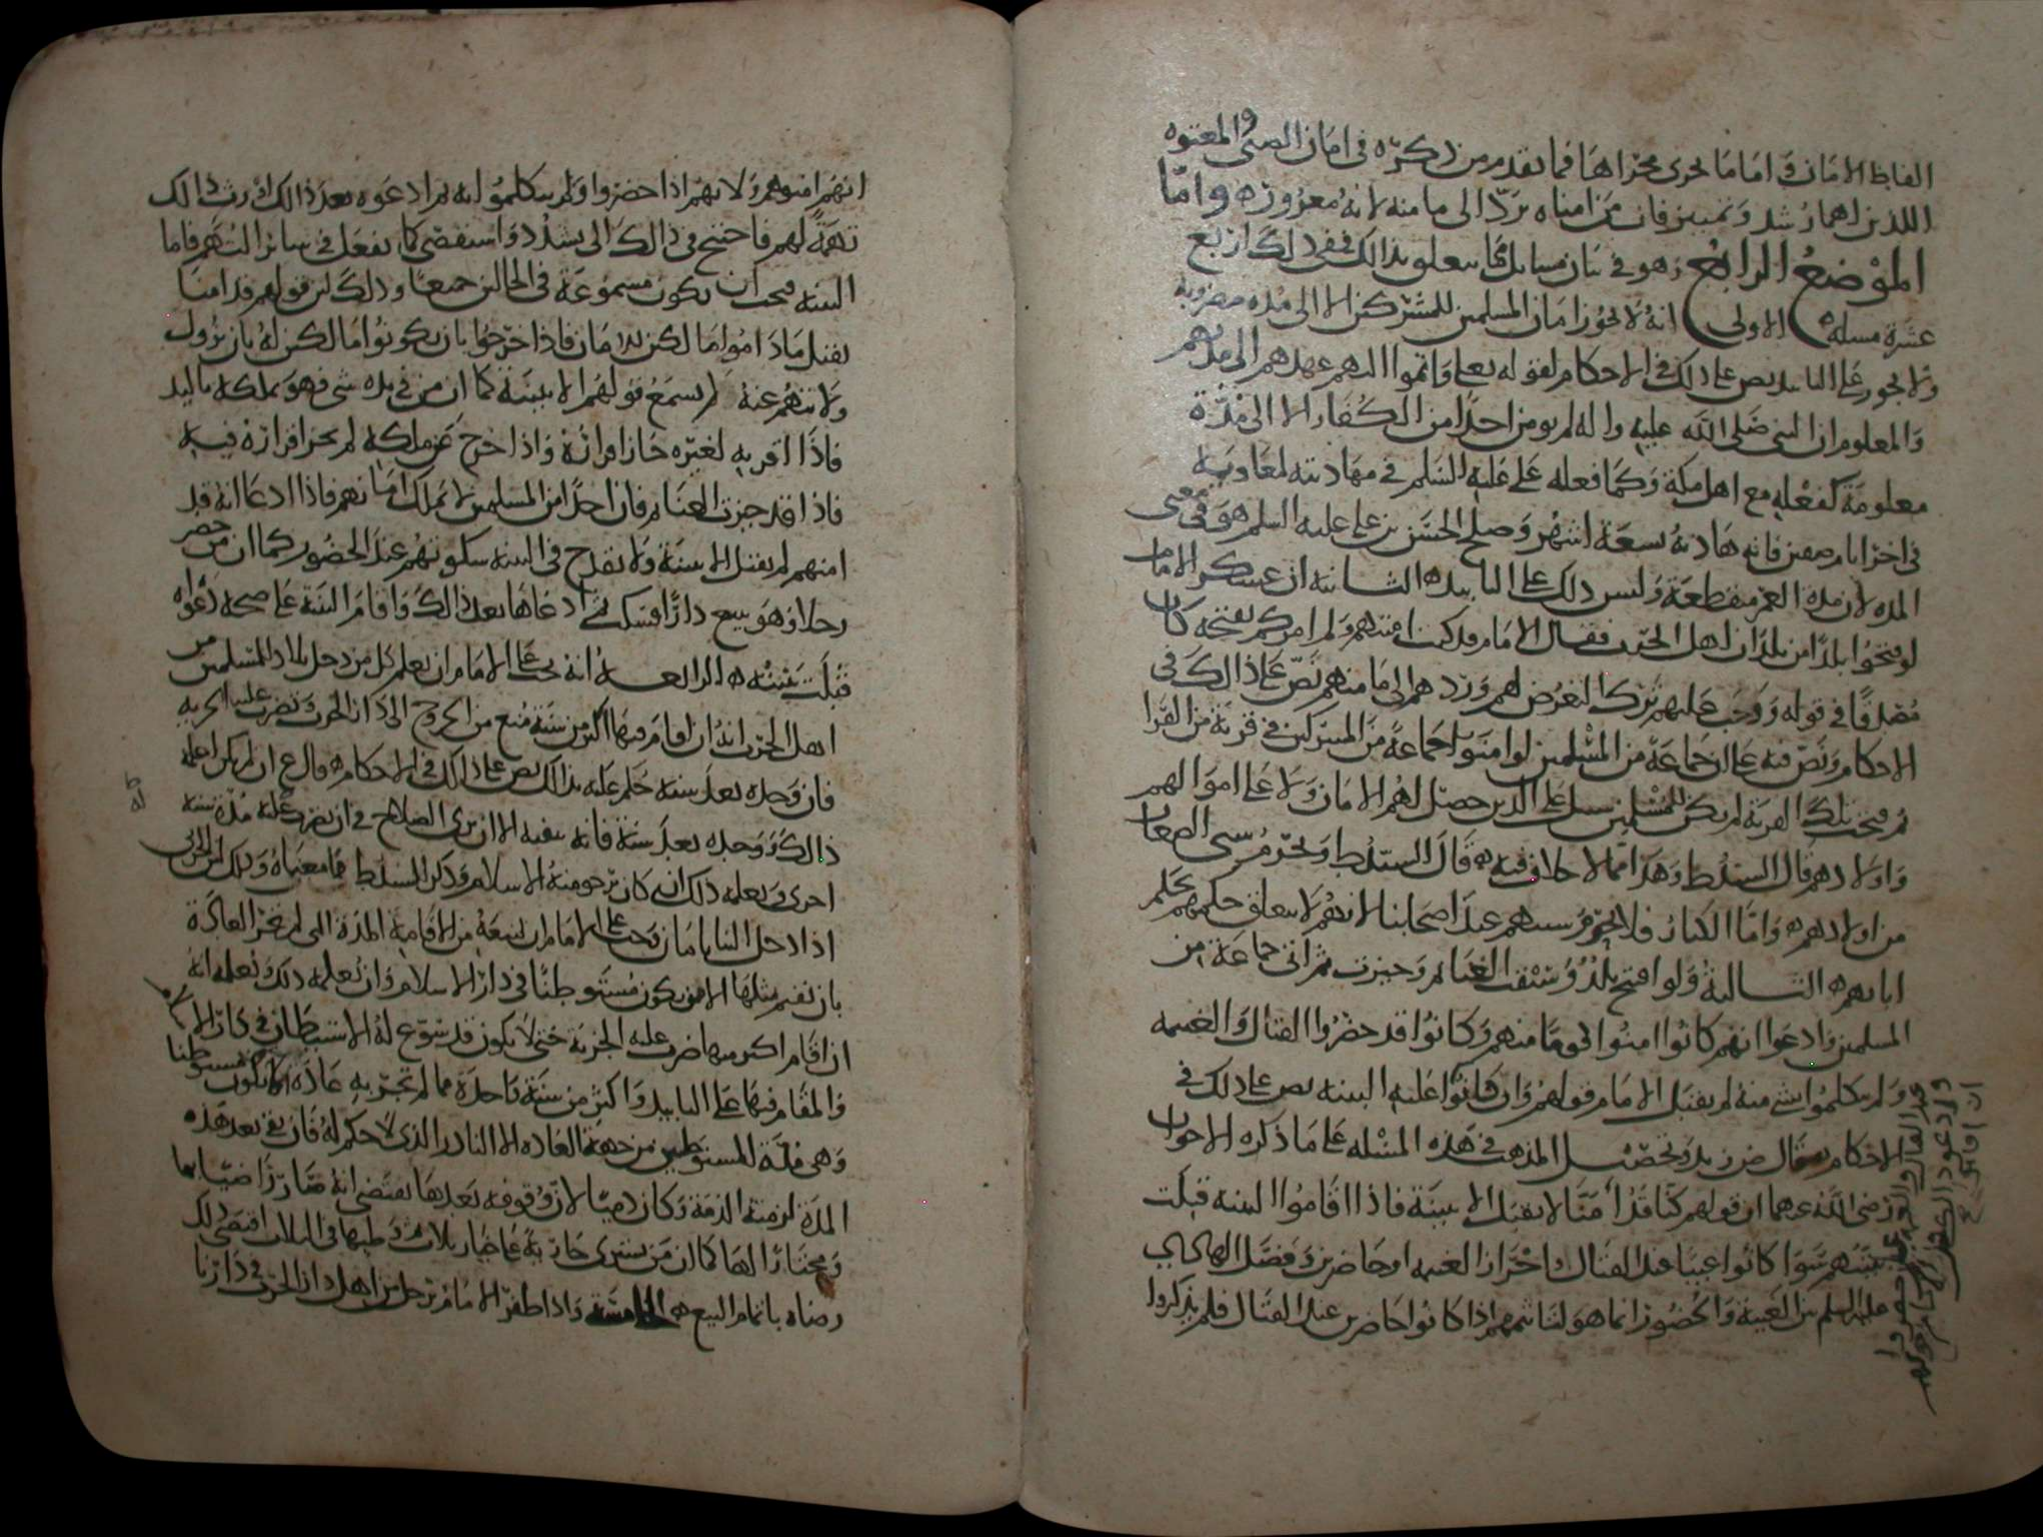 الفاظ الامان واما ما يجري مجراها فما تقدم من ذكره في امان الصبي والمعتوه
اللذين لهما رشد وتمييز فان من امناه يرد الى مامنه لانه مغرور ه واما
الموضع الرابع وهو في بيان مسائل مما يتعلق بذلك ففي ذلك اربع
عشرة مسلة ه الاولى انه لا يجوز امان المسلمين للمشركين الا الى مدة مضروبة
ولا يجوز على التابيد نص على ذلك في الاحكام لقوله تعلى واتموا اليهم عهدهم الى مدتهم
والمعلوم ان النبي صلى الله عليه واله لم يومن احدا من الكفار الا الى مدة
معلومة كفعله مع اهل مكة وكما فعله علي عليه السلم في مهادنته لمعاوية
في اخر ايام صفين فانه هادنه تسعة اشهر وصلح الحسن بن علي عليه السلم هو في معنى
المدة لان مدة العمر منقطعة وليس ذلك على التابيد ه الثانية ان عسكر الامام
لو فتحوا بلدا من بلدان اهل الحرب فقال الامام قد كنت امنتهم ولم امركم بفتحه كان
مصدقا في قوله ووجب عليهم ترك التعرض لهم وردهم الى مامنهم نص على ذلك في
الاحكام ونص فيه على ان جماعة من المسلمين لو امنوا جماعة من المشركين في قرية من القرا
ثم فتحت تلك القرية لم يكن للمسلمين سبيل على الذين حصل لهم الامان ولا على اموالهم
واولادهم قال السيد ط وهذا مما لا خلاف فيه ه قال السيد ط ويحرم سبي الصغار
من اولادهم ه واما الكبار فلا يحرم سبيهم عند اصحابنا لانهم لا يتعلق حكمهم بحكم
ابايهم ه الثالثة ولو افتتح بلد وسيقت الغنايم وحيزت ثم اتى جماعة من
المسلمين وادعوا انهم كانوا امنوا قوما منهم وكانوا قد حضروا القتال والغنيمة
ولم يتكلموا بشي منه لم يقبل الامام قولهم وان قاموا عليه البينة نص على ذلك في
الاحكام قال ض زيد وتحصيل المذهب في هذه المسئلة على ما ذكره الاخوان
رضى الله عنهما ان قولهم كنا قد امنا لا يقبل الا ببينة فاذا اقاموا البينة قبلت
بينتهم سوا كانوا غيبا عند القتال واحراز الغنيمة او حاضرين وفصل الهادي
عليه السلم بين الغيبة والحضور انما هو لتاثيمهم اذا كانوا حاضرين عند القتال فلم يذكروا
انهم امنوهم ولانهم اذا حضروا ولم يتكلموا به ثم ادعوه بعد ذالك اورث ذالك
تهمة لهم فاحتيج في ذالك الى تشدد واستقصى كما يفعل في سائر التهم فاما
البينة فيجب ان يكون مسموعة في الحالين جميعا وذلك لان قولهم قد امنا
يقبل ما داموا مالكين للامان فاذا خرجوا بان يكونوا مالكين له بان يزول
ولايتهم عنه لم يسمع قولهم الا ببينة كما ان من في يده شي فهو يملكه باليد
فاذا اقر به لغيره جاز اقراره واذا خرج عن ملكه لم يجز اقراره فيه
فاذا قد حيزت الغنايم فان احدا من المسلمين لا يملك امانهم فاذا ادعا انه قد
امنهم لم يقبل الا ببينة ولا يقدح في البينة سكوتهم عند الحضور كما ان من حضر
رجلا وهو يبيع دارا فسكت ثم ادعاها بعد ذالك واقام البينة على صحة دعواه
قبلت بينته ه الرابعة انه يجب على الامام ان يعلم كل من دخل بلاد المسلمين من
اهل الحرب انه ان اقام فيها اكثر من سنة منع من الخروج الى دار الحرب وتضرب عليه الجزية
فان وجده بعد سنة حكم عليه بذلك نص على ذلك في الاحكام ه قال ع ان لم يكن اعلمه
ذالك ووجده بعد سنة فانه ينفيه الا ان يرى الصلاح في ان يضرب عليه مدة سنة
اخرى ويعلمه ذلك ان كان يرجو منه الاسلام وذكر السيد ط ما معناه وذلك ان الحربي
اذا دخل الينا بامان وجب على الامام ان يمنعه من الاقامة المدة التي لم تجر العادة
بان يقيم مثلها الا من يكون مستوطنا في دار الاسلام وان يعلمه ذلك ويعلمه انه
ان اقام اكثر منها ضرب عليه الجزية حتى لا يكون قد سوغ له الاستيطان في دار الاسلام
والمقام فيها على التابيد واكثر من سنة واحدة مما لم تجر به عادة الا ان يكون مستوطنا
وهي قلة المستوطين من جهة العادة الا النادر الذي لا حكم له فان بقى بعد هذه
المدة لزمته الذمة وكان ذميا لان وقوفه بعدها يقتضي انه صار راضيا بها
ومختارا لها كما ان من يشتري جارية على خيار ثلاث وطيها في الثلاث اقتضى ذلك
رضاه باتمام البيع ه الخامسة واذا ظفر الامام برجل من اهل دار الحرب في دارنا